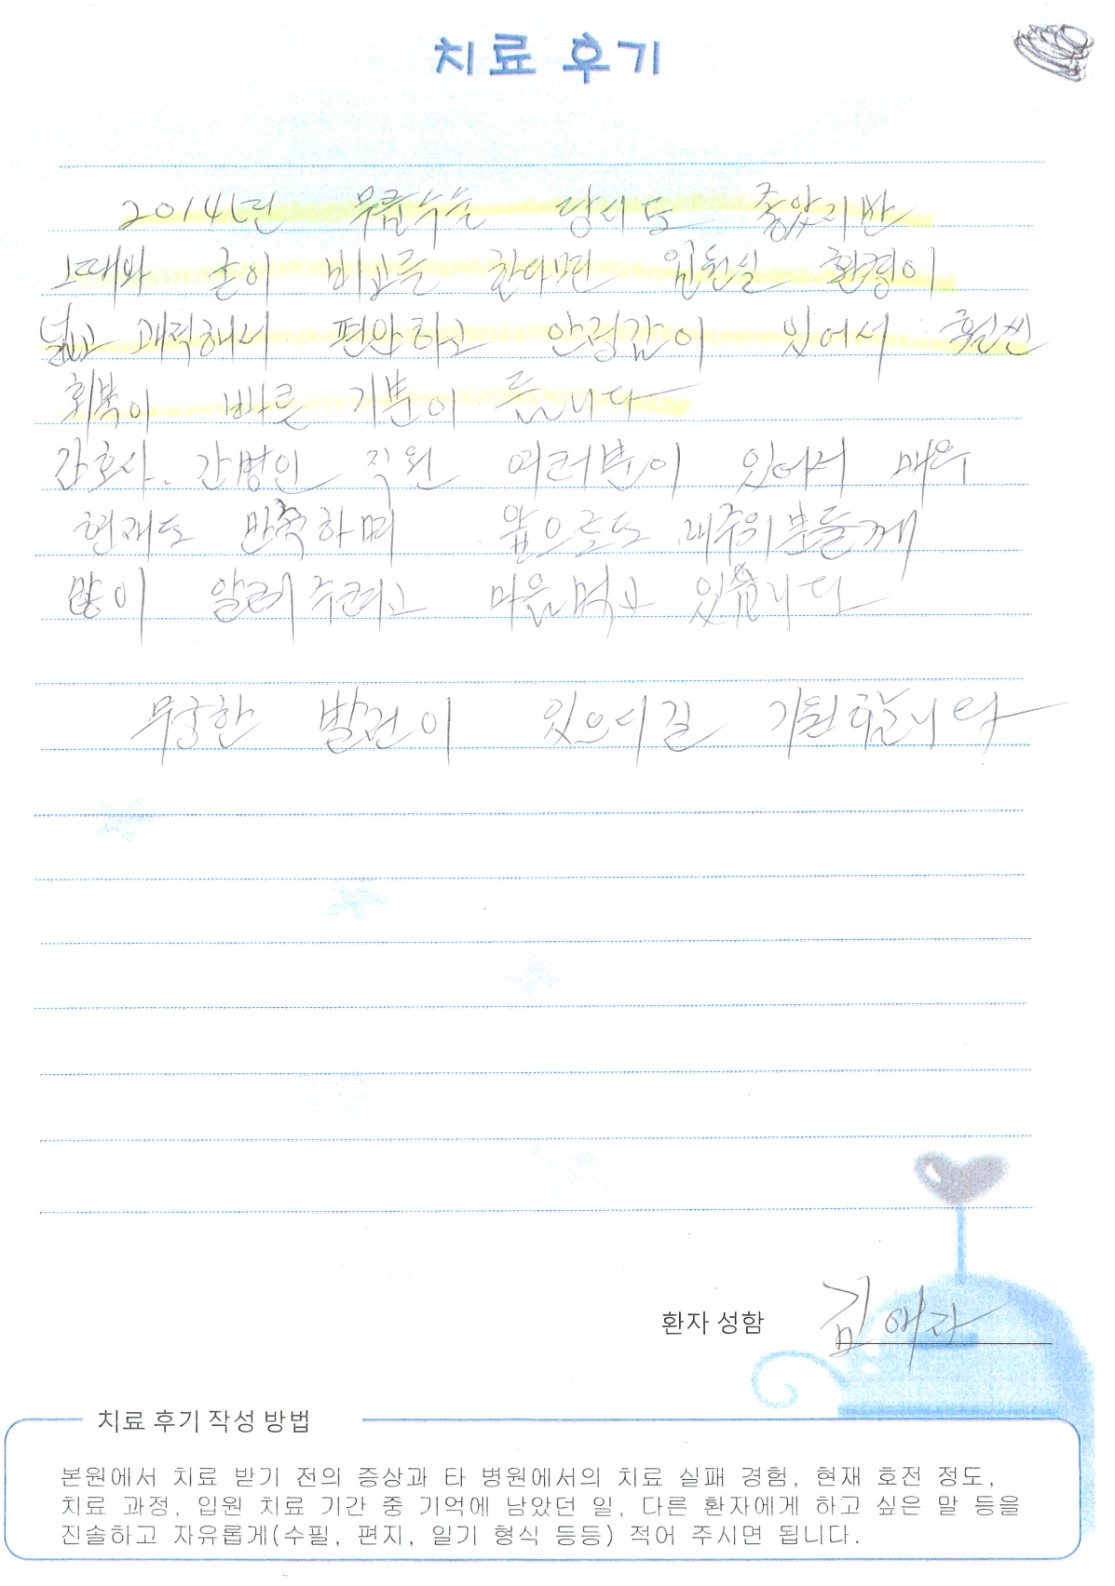 치료 후기
2014년 무릎수술 당시도 좋았지만
그때와 굳이 비교를 한다면 입원실 환경이
넓고 쾌적해서 편안하고 안정감이 있어서 훨씬
회복이 빠른 기분이 듭니다
간호사. 간병인 직원 여러분이 있어서 매우
현재도 만족하며 앞으로도 내주위분들께
많이 알려주려고 마음먹고 있습니다
무궁한 발전이 있으시길 기원합니다
환자 성함 김애자
치료 후기 작성 방법
본원에서 치료 받기 전의 증상과 타 병원에서의 치료 실패 경험, 현재 호전 정도,
치료 과정, 입원 치료 기간 중 기억에 남았던 일, 다른 환자에게 하고 싶은 말 등을
진솔하고 자유롭게(수필, 편지, 일기 형식 등등) 적어 주시면 됩니다.